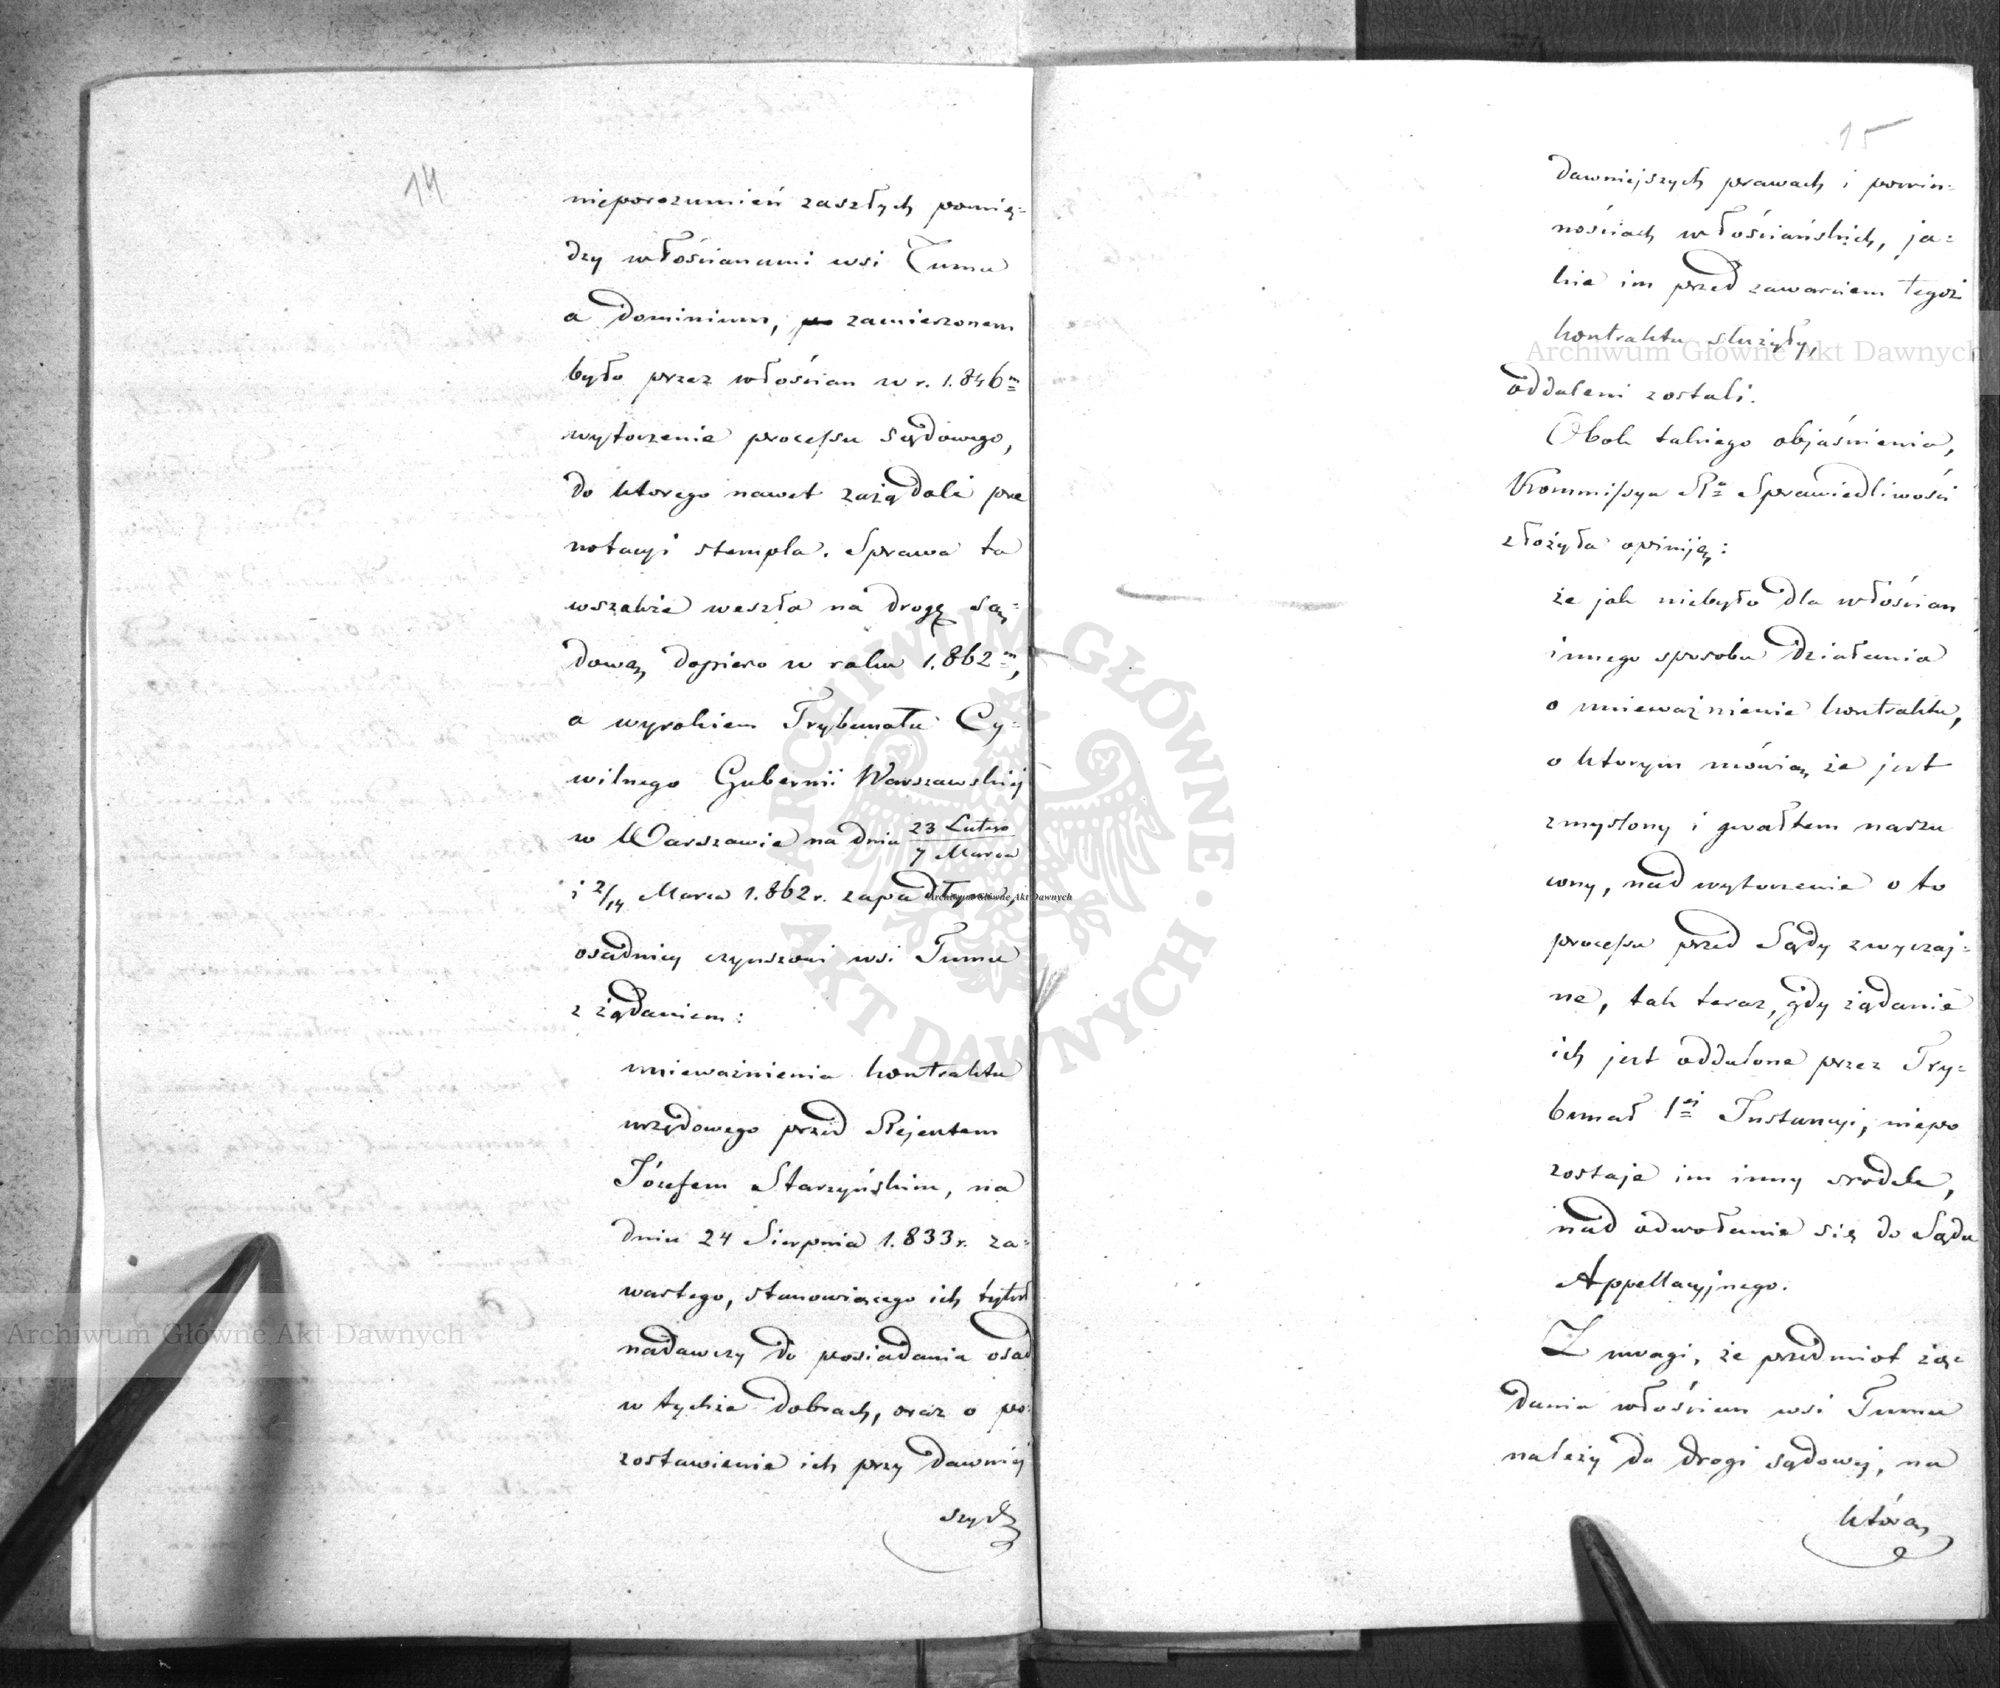 14
nieporozumień zaszłych pomię=
dzy włościanami wsi Tumu
a Dominium, po zamierzonem
było przez włościan w r. 1.846m
wytoczenie processu Sądowego,
do ktorego nawet zażądali pre
notacyi stempla. Sprawa ta
wszakże weszła na drogę Są=
dową, dopiero w roku 1.862m,
a wyrokiem Trybunału Cy=
wilnego Gubernii Warszawskiej
w Warszawie na dniu 23 Lutego / 7 Marca
i 2/14 Marca 1.862 r. zapadłym,
osadnicy czynszowi wsi Tumu
z żądaniem:
unieważnienia kontraktu
urzędowego przed Rejentem
Józefem Starzyńskim, na
dniu 24 Sierpnia 1.833 r. za=
wartego, stanowiącego ich tytuł
nadawczy do posiadania osad
w tychże dobrach, oraz o po=
zostawienie ich przy dawniej
szych
15
dawniejszych prawach i powin=
nościach włościańskich, ja=
kie im przed zawarciem tegoż
kontraktu służyły,
oddaleni zostali.
Obok takiego objaśnienia,
Kommissya Ra Sprawiedliwości
złożyła opiniję:
że jak niebyło dla włościan
innego sposobu działania
o unieważnienie kontraktu,
o ktorym mówią, że jest
zmyslony i gwałtem narzu
cony, nad wytoczenie o to
processu przed Sądy zwyczaj=
ne, tak teraz, gdy żądanie
ich jest oddalone przez Try=
bunał 1ej Instancyi, niepo
zostaje im inny srodek,
nad odwołanie się do Sądu
Appellacyjnego.
Z uwagi, że przedmiot żą=
dania włościan wsi Tumu
należy do drogi sądowej, na
którą
Archiwum Główne Akt Dawnych
Archiwum Główne Akt Dawnych
Archiwum Główne Akt Dawnych
ARCHIWUM GŁÓWNE · AKT DAWNYCH ·